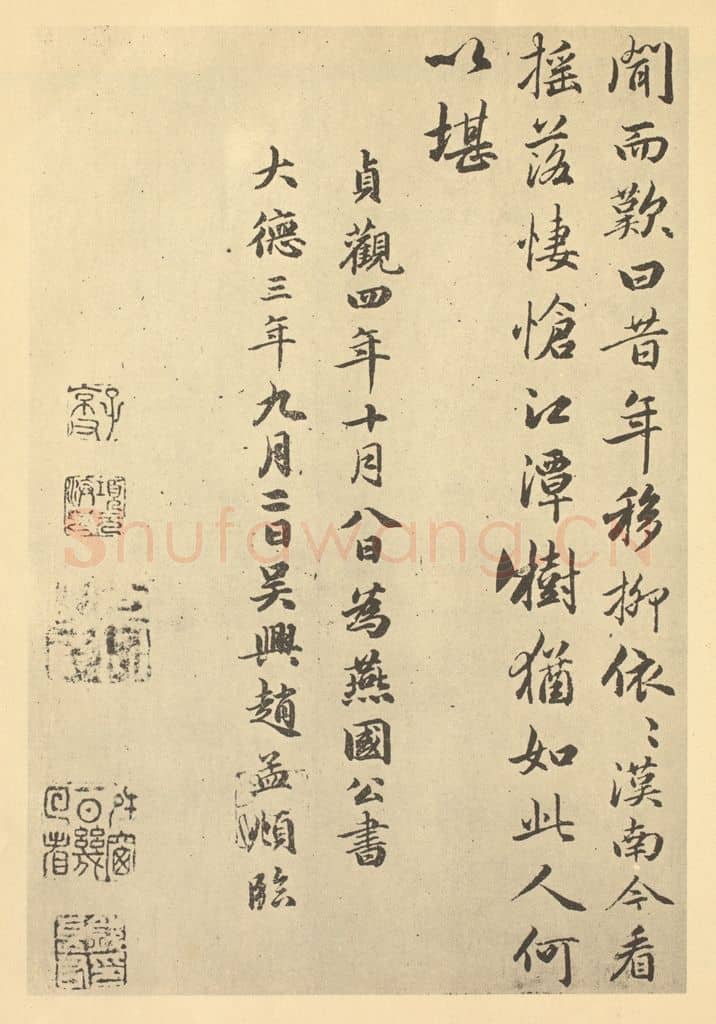 聞而歎曰昔年移柳依〻漢南今看
摇落悽愴江潭樹猶如此人何
以堪
貞觀四年十月八日為燕國公書
大德三年九月二日吴興趙孟頫臨
Shufawang.CN